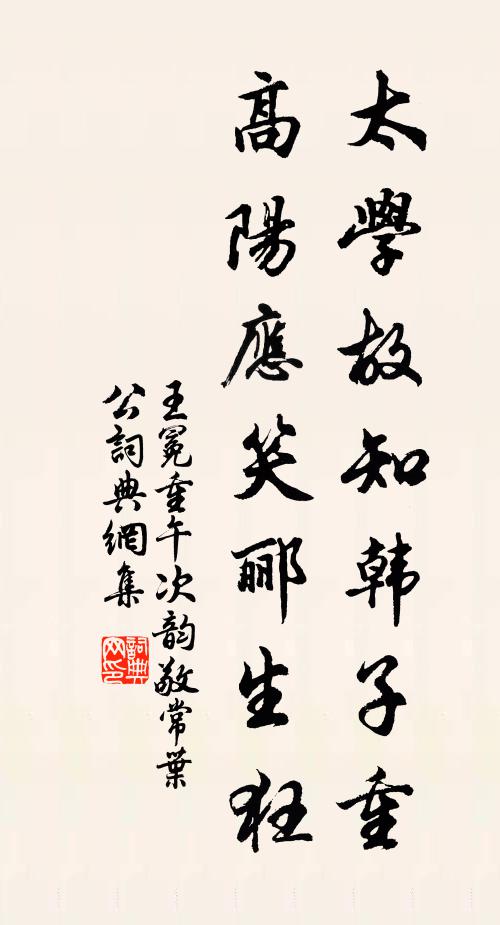 太學故知韩子重
高陽應笑郦生狂
王冕重午次韵敬常葉
公詞典網集
詞典网印